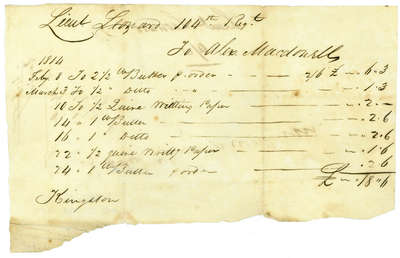 Lieut Leonard 104th Regt
To Alex Macdonell
1814
Feby 8 To 2½ lb Butter p order - - 2/6 £ - " 6 " 3
March 3 To ½ " Ditto " " - - - " 1 " 3
10 To ½ Quire Writting Paper - - " 2 " -
14 " 1 lb Butter - - - " 2 " 6
16 " 1 " Ditto - - - " 2 " 6
22 " ½ quire Writtg Paper - - " 1 " 6
24 " 1 lb Butter p order - - " 2 " 6
£ - " 18 " 6
Kingston